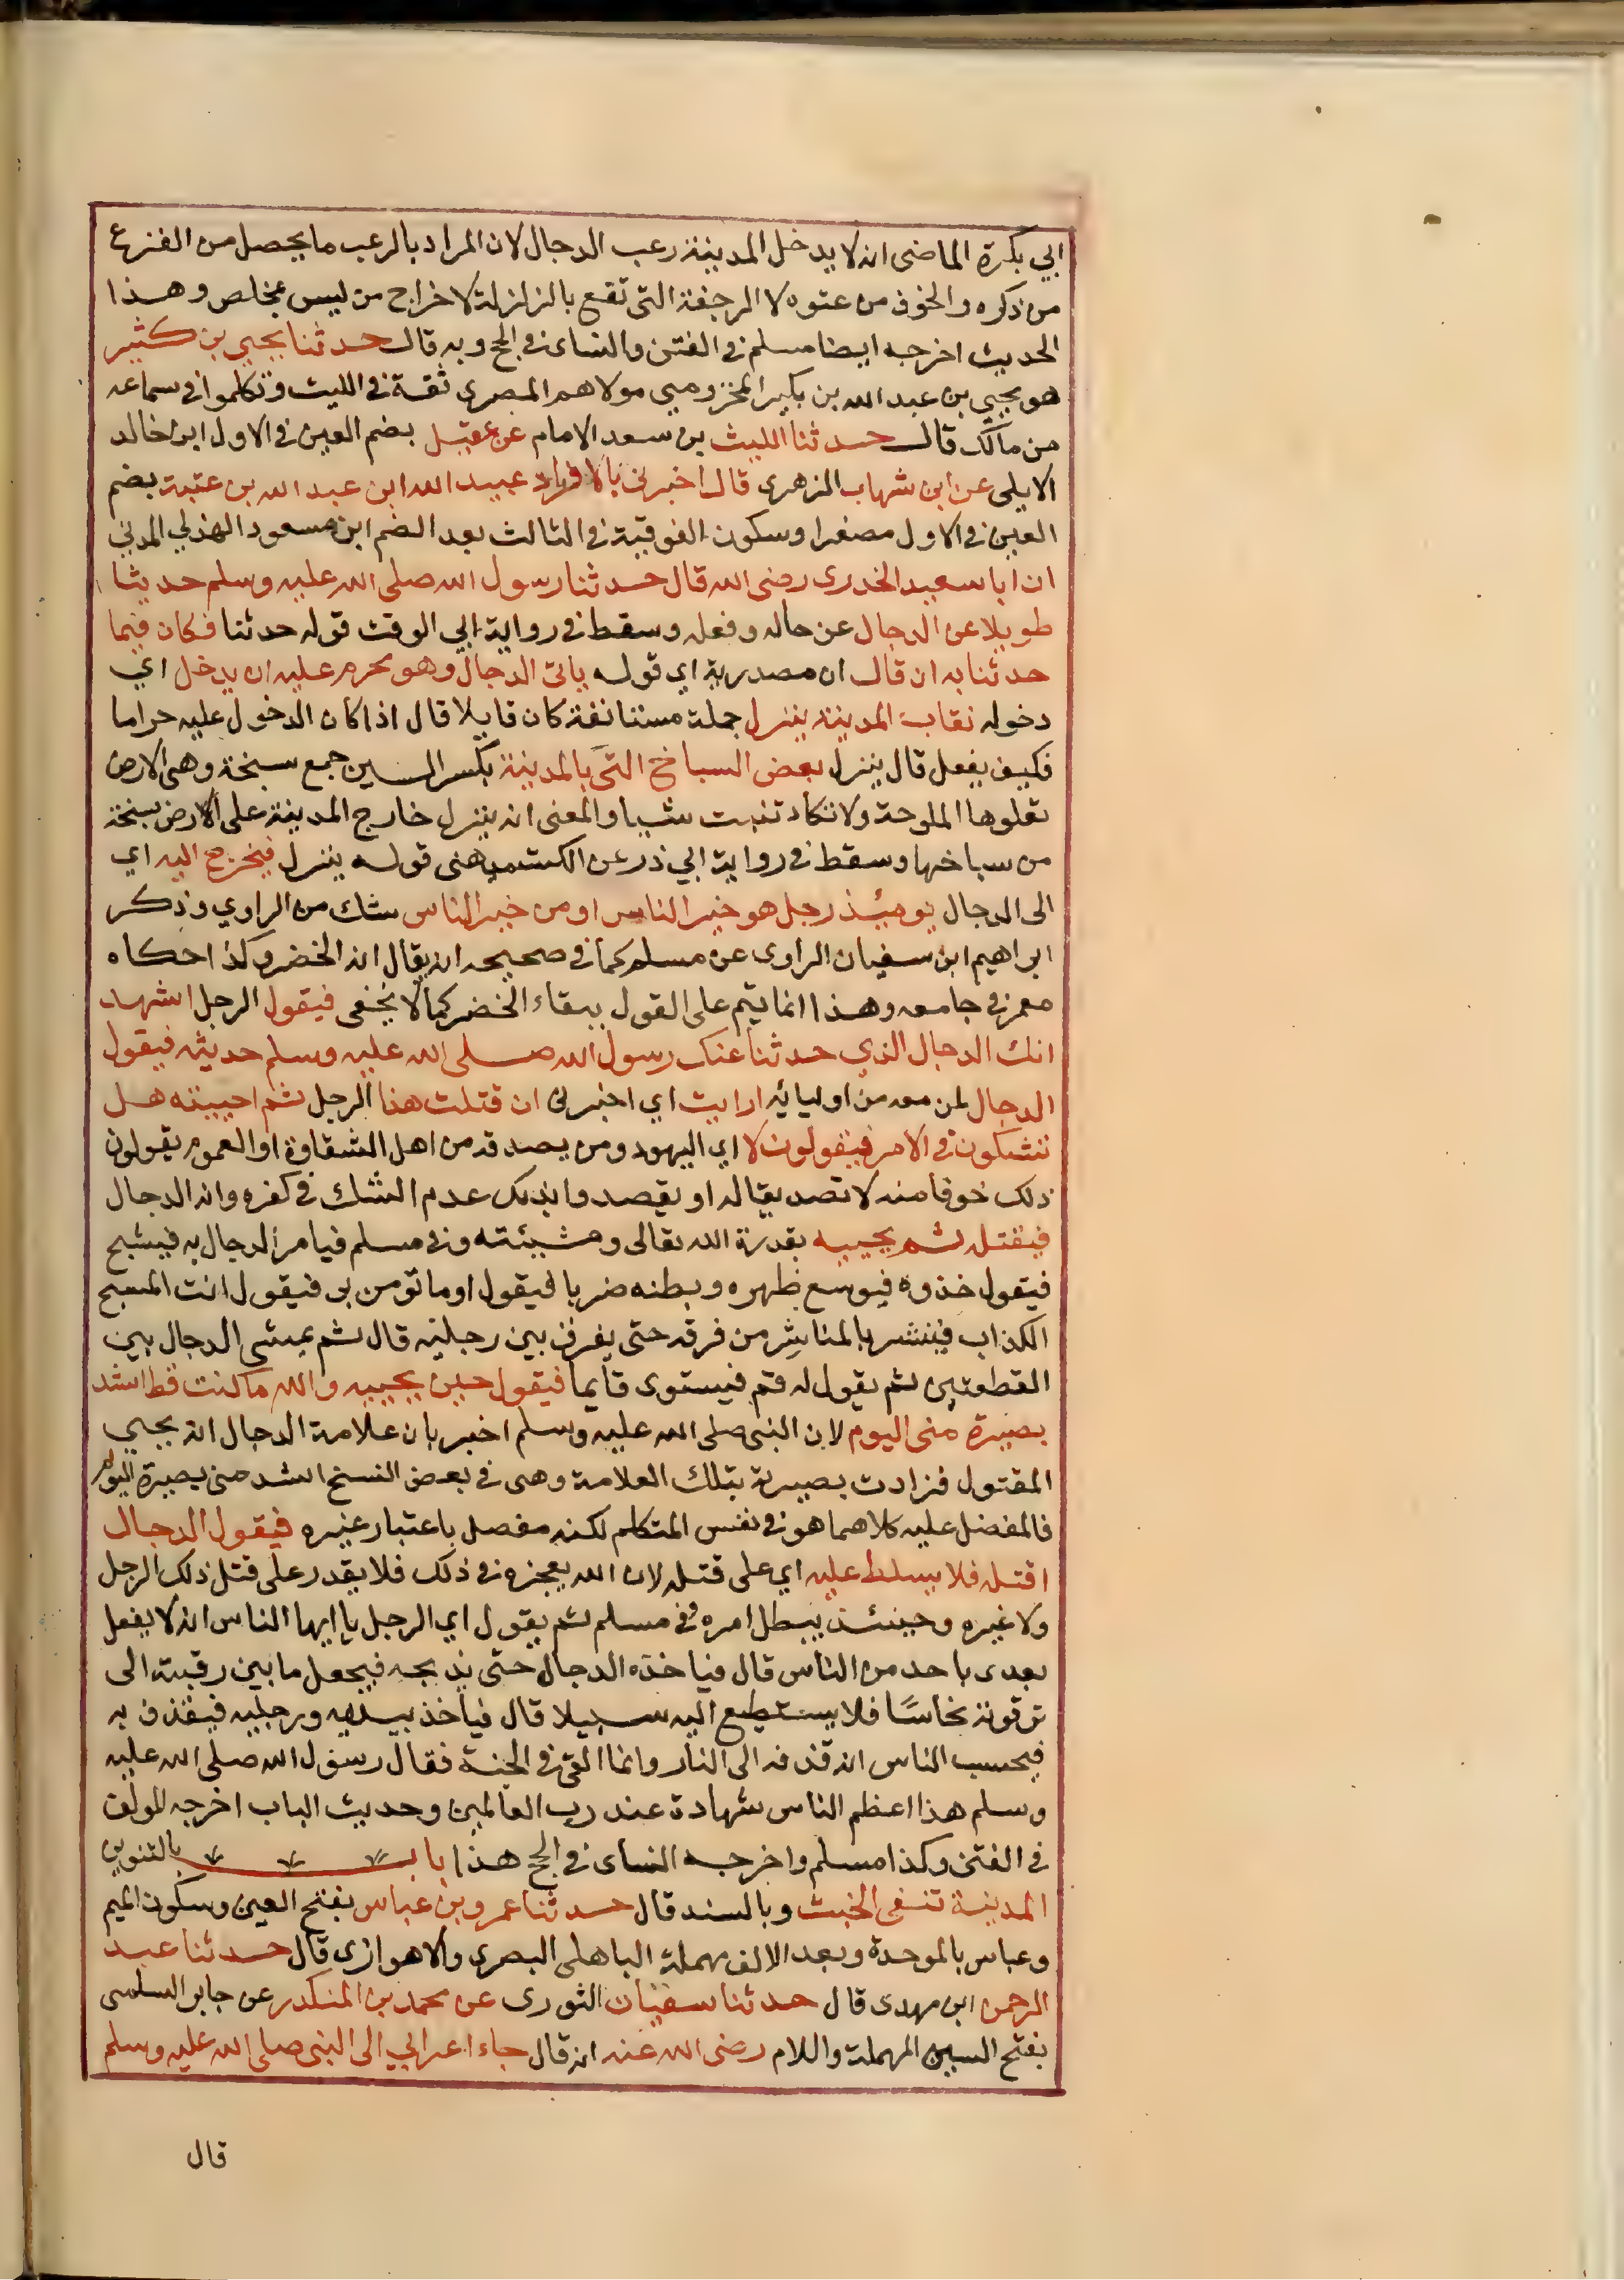 ابي بكرة الماضي انه لا يدخل المدينة رعب الدجال لان المراد بالرعب ما يحصل من الفزع
من ذكره والخوف من عتوه لا الرجفة التي تقع بالزلزلة لاخراج من ليس بمخلص وهذا
الحديث اخرجه ايضا مسلم في الفتن والنساى في الحج وبه قال حدثنا يحيى بن كثير
هو يحيى بن عبد الله بن بكير المخزومي مولاهم المصري ثقة في الليث وتكلموا في سماعه
من مالك قال حدثنا الليث بن سعد الامام عن عقيل بضم العين في الاول ابن خالد
الايلى عن ابن شهاب الزهرى قال اخبرنى بالافراد عبيد الله ابن عبد الله بن عتبة بضم
العين في الاول مصغرا وسكون الفوقية في الثالث بعد الضم ابن مسعود الهذلي المدني
ان ابا سعيد الخدرى رضى الله قال حدثنا رسول الله صلى الله عليه وسلم حديثا
طويلا عن الدجال عن حاله وفعله وسقط في رواية ابي الوقت قوله حدثنا فكان فيما
حدثنا به ان قال ان مصدرية اي قوله ياتى الدجال وهو محرم عليه ان يدخل اي
دخوله نقاب المدينة ينزل جملة مستانفة كان قايلا قال اذا كان الدخول عليه حراما
فكيف يفعل قال ينزل بعض السباخ التى بالمدينة بكسر السين جمع سبخة وهى الارض
تعلوها الملوحة ولا تكاد تنبت شيا والمعنى انه ينزل خارج المدينة على الارض سبخة
من سباخها وسقط في رواية ابي ذر عن الكشميهنى قوله ينزل فيخرج اليه اي
الى الدجال يوميذ رجل هو خير الناس او من خير الناس شك من الراوي وذكر
ابراهيم ابن سفيان الراوى عن مسلم كما في صحيحه انه يقال انه الخضر وكذا حكاه
معمر في جامعه وهذا انما يتم على القول ببقاء الخضر كما لا يخفى فيقول الرجل اشهد
انك الدجال الذي حدثنا عنك رسول الله صلى الله عليه وسلم حديثه فيقول
الدجال لمن معه من اوليائه ارايت اي اخبرنى ان قتلت هذا الرجل ثم احييته هل
تشكون في الامر فيقولون لا اي اليهود ومن يصدقه من اهل الشقاوة او العموم يقولون
ذلك خوفا منه لا تصديقا له او يقصدوا بذلك عدم الشك في كفره وانه الدجال
فيقتله ثم يحييه بقدرة الله تعالى ومشيئته وفي مسلم فيامر الدجال به فيشبح
فيقول خذوه فيوسع ظهره وبطنه ضربا فيقول اوما تومن بى فيقول انت المسيح
الكذاب فينشر بالمناشر من فرقه حتى يفرق بين رجليه قال ثم يمشى الدجال بين
القطعتين ثم يقول له قم فيستوى قايما فيقول حين يحييه والله ما كنت قط اشد
بصيرة منى اليوم لان النبي صلى الله عليه وسلم اخبر بان علامة الدجال انه يحيى
المقتول فزادت بصيرته بتلك العلامة وهى في بعض النسخ اشد منى بصيرة اليوم
فالمفضل عليه كلاهما هو في نفس المتكلم لكنه مفضل باعتبار غيره فيقول الدجال
اقتله فلا يسلط عليه اي على قتله لان الله يعجزه في ذلك فلا يقدر على قتل ذلك الرجل
ولا غيره وحينئذ يبطل امره وفي مسلم ثم يقول اي الرجل يا ايها الناس انه لا يفعل
بعدى باحد من الناس قال فياخذه الدجال حتى يذبحه فيجعل ما بين رقبته الى
ترقوته نحاسًا فلا يستطيع اليه سبيلا قال فياخذ بيديه ورجليه فيقذف به
فيحسب الناس انه قذفه الى النار وانما القى في الجنة فقال رسول الله صلى الله عليه
وسلم هذا اعظم الناس شهادة عند رب العالمين وحديث الباب اخرجه المولف
في الفتن وكذا مسلم واخرجه النساى في الحج هذا باب بالتنوين
المدينة تنفى الخبث وبالسند قال حدثنا عمرو بن عباس بفتح العين وسكون الميم
وعباس بالموحدة وبعد الالف مهملة الباهلى البصري والاهوازى قال حدثنا عبد
الرحمن ابن مهدى قال حدثنا سفيان الثورى عن محمد بن المنكدر عن جابر السلمى
بفتح السين المهملة واللام رضى الله عنه انه قال جاء اعرابي الى النبي صلى الله عليه وسلم
قال